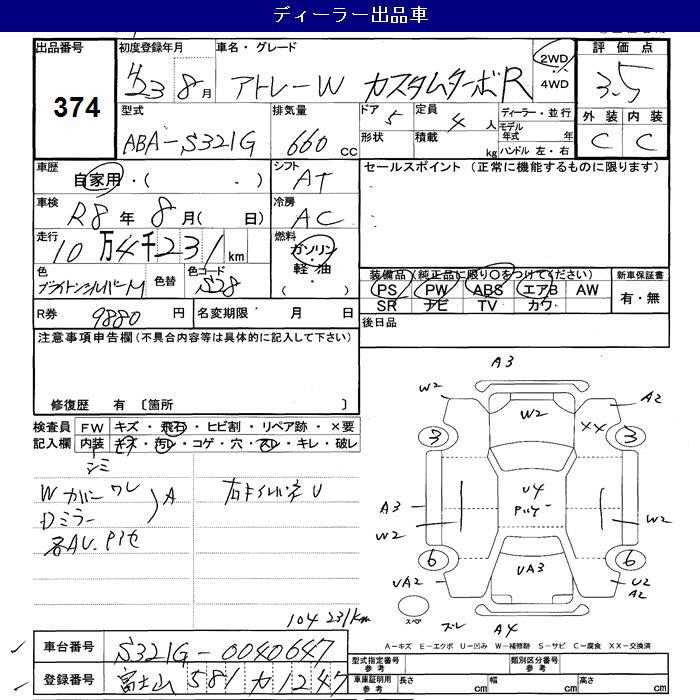 ディーラー出品車
出品番号 374
初度登録年月 H23 8月
車名・グレード アトレーW カスタムターボR
2WD ・ 4WD
評価点 3.5
外装 内装
C C
型式 ABA-S321G
排気量 660 cc
ドア 5
形状
定員 4人
積載 kg
ディーラー・並行
モデル年式 年
ハンドル 左・右
車歴 自家用・( . )
シフト AT
セールスポイント (正常に機能するものに限ります)
車検 R8年 8月( 日)
冷房 AC
走行 10万4千231km
燃料 ガソリン ・ 軽油 ・ ( )
色
色替
色コード S28
装備品(純正品に限り○をつけてください)
新車保証書
PS PW ABS エアB AW
SR ナビ TV カワ
有・無
R券 9880円
名変期限 月 日
後日品
注意事項申告欄(不具合内容等は具体的に記入して下さい)
修復歴 有 〔箇所 〕
検査員記入欄
FW キズ・飛石・ヒビ割・リペア跡・×要
内装 キズ・汚レ・コゲ・穴・スレ・キレ・破レ
シミ
Dミラー
A
A3
W2
W2
A2
XX
3
3
U4
A3
W2
W2
6
6
UA2
UA3
U2
A2
A4
104231km
A-キズ E-エクボ U-凹み W-補修跡 S-サビ C-腐食 XX-交換済
車台番号 S321G-0040647
登録番号 富士山 581 カ 1247
型式指定番号 参考
類別区分番号 参考
車庫証明用 参考
長さ cm
幅 cm
高さ cm